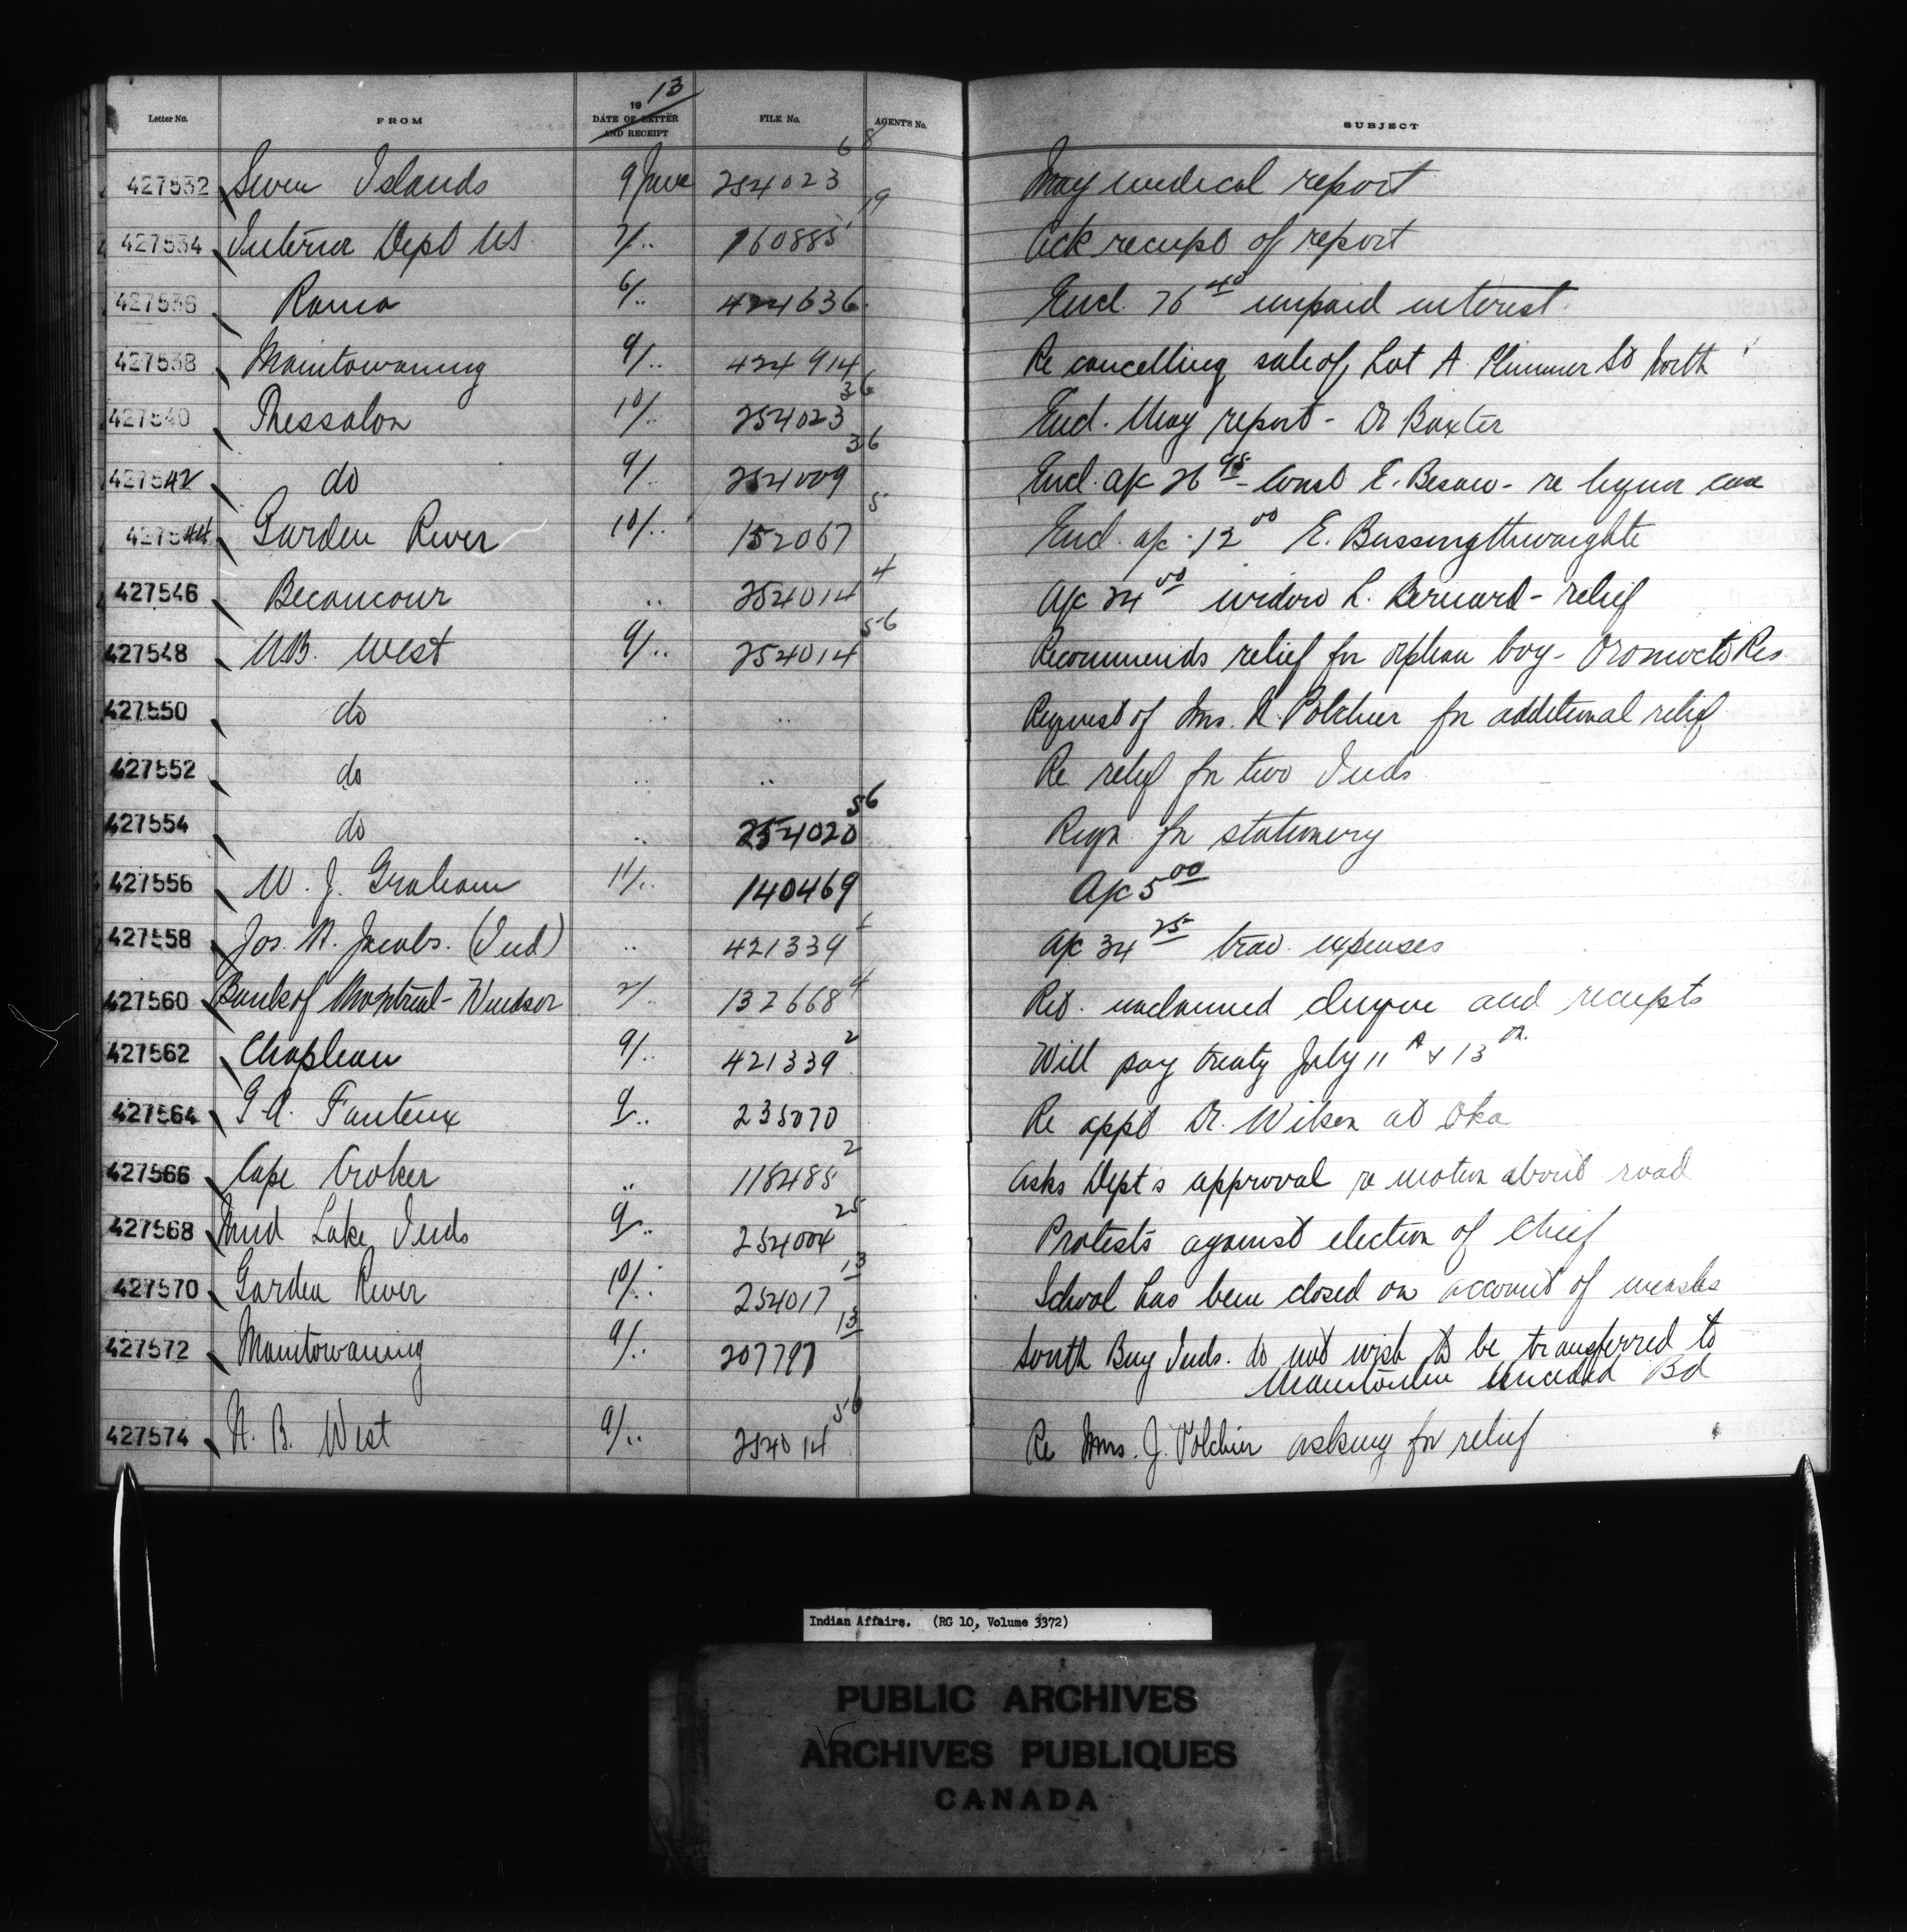 19 13
Letter No. FROM DATE OF LETTER AND RECEIPT FILE No. AGENT'S No. SUBJECT
427532 Seven Islands 9 June 254023 68 May medical report
427534 Interior Dept US 7/.. 160885 19 Ack receipt of report
427536 Rama 6/.. 424636 Encl. 76 40 unpaid interest
427538 Manitowaning 9/.. 424914 Re cancelling sale of Lot A Plummer St North
427540 Thessalon 10/.. 254023 36 Encl. May report - Dr Baxter
427542 do 9/. 254009 36 Encl. a/c 26 95 - Const E. Besaw - re liquor case
427544 Garden River 10/.. 152067 5 Encl. a/c 12 00 E. Bussingthwaighte
427546 Becancour .. 254014 4 a/c 24 00 widow L. Bernard - relief
427548 N.B. West 9/.. 254014 56 Recommends relief for orphan boy - Oromocto Res.
427550 do .. .. Request of Mrs. N. Polchier for additional relief
427552 do .. .. Re relief for two Inds
427554 do .. 254020 56 Reqn for stationery
427556 W. J. Graham 11/.. 140469 A/c 5 00
427558 Jos. N. Jacobs. (Ind) .. 421339 a/c 34 25 trav. expenses
427560 Bank of Montreal - Windsor 2/. 132668 4 Ret. unclaimed cheque and receipts
427562 Chapleau 9/.. 421339 2 Will pay treaty July 11th & 13th.
427564 G. A. Fauteux 9/.. 235070 Re appt Dr. Wilson at Oka
427566 Cape Croker .. 118485 2 Asks Dept's approval re motion about road
427568 Mud Lake Inds 9/.. 254004 25 Protests against election of Chief
427570 Garden River 10/.. 254017 13 School has been closed on account of measles
427572 Manitowaning 9/.. 207797 13 South Bay Inds. do not wish to be transferred to
Manitoulin Unceded Bd
427574 N. B. West 9/.. 254014 56 Re Mrs. J. Polchier asking for relief
Indian Affairs. (RG 10, Volume 3372)
PUBLIC ARCHIVES
ARCHIVES PUBLIQUES
CANADA